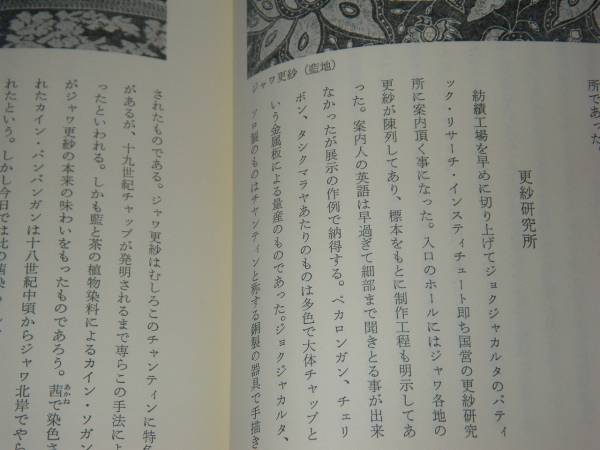 所であった。
更紗研究所
紡績工場を早めに切り上げてジョクジャカルタのバティ
ック・リサーチ・インスティチュート即ち国営の更紗研究
所に案内頂く事になった。入口のホールにはジャワ各地の
更紗が陳列してあり、標本をもとに制作工程も明示してあ
った。案内人の英語は早過ぎて細部まで聞きとる事が出来
なかったが展示の作例で納得する。ペカロンガン、チェリ
ボン、タシクマラヤあたりのものは多色で大体チャップと
いう金属板による量産のものであった。ジョクジャカルタ、
ソロ製のものはチャンティンと称する銅製の器具で手描き
ジャワ更紗（藍地）
されたものである。ジャワ更紗はむしろこのチャンティンに特色
があるが、十九世紀チャップが発明されるまで専らこの手法によ
ったといわれる。しかも藍と茶の植物染料によるカイン・ソガン
がジャワ更紗の本来の味わいをもったものであろう。茜で染色さ
あかね
れたカイン・バンバンガンは十八世紀中頃からジャワ北岸でやら
れたという。しかし今日では此の茜染